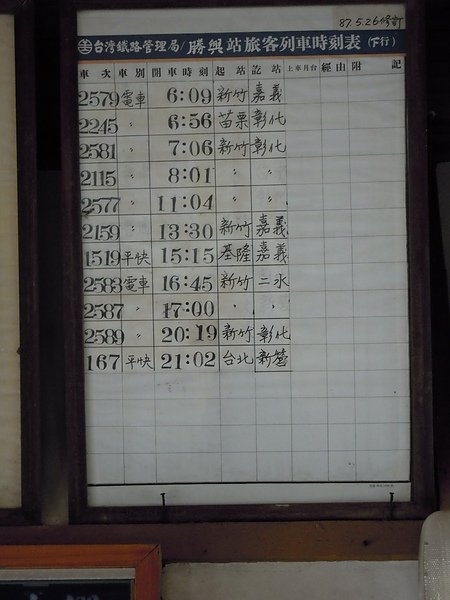 87.5.26修訂
台灣鐵路管理局/勝興站旅客列車時刻表(下行)
車次 車別 開車時刻 起站 訖站 上車月台 經由 附記
2579 電車 6:09 新竹 嘉義
2245 〃 6:56 苗栗 彰化
2581 〃 7:06 新竹 彰化
2115 〃 8:01 〃 〃
2577 〃 11:04 〃 〃
2159 〃 13:30 新竹 嘉義
1519 平快 15:15 基隆 嘉義
2583 電車 16:45 新竹 二水
2587 〃 17:00 〃 〃
2589 〃 20:19 新竹 彰化
167 平快 21:02 台北 新營